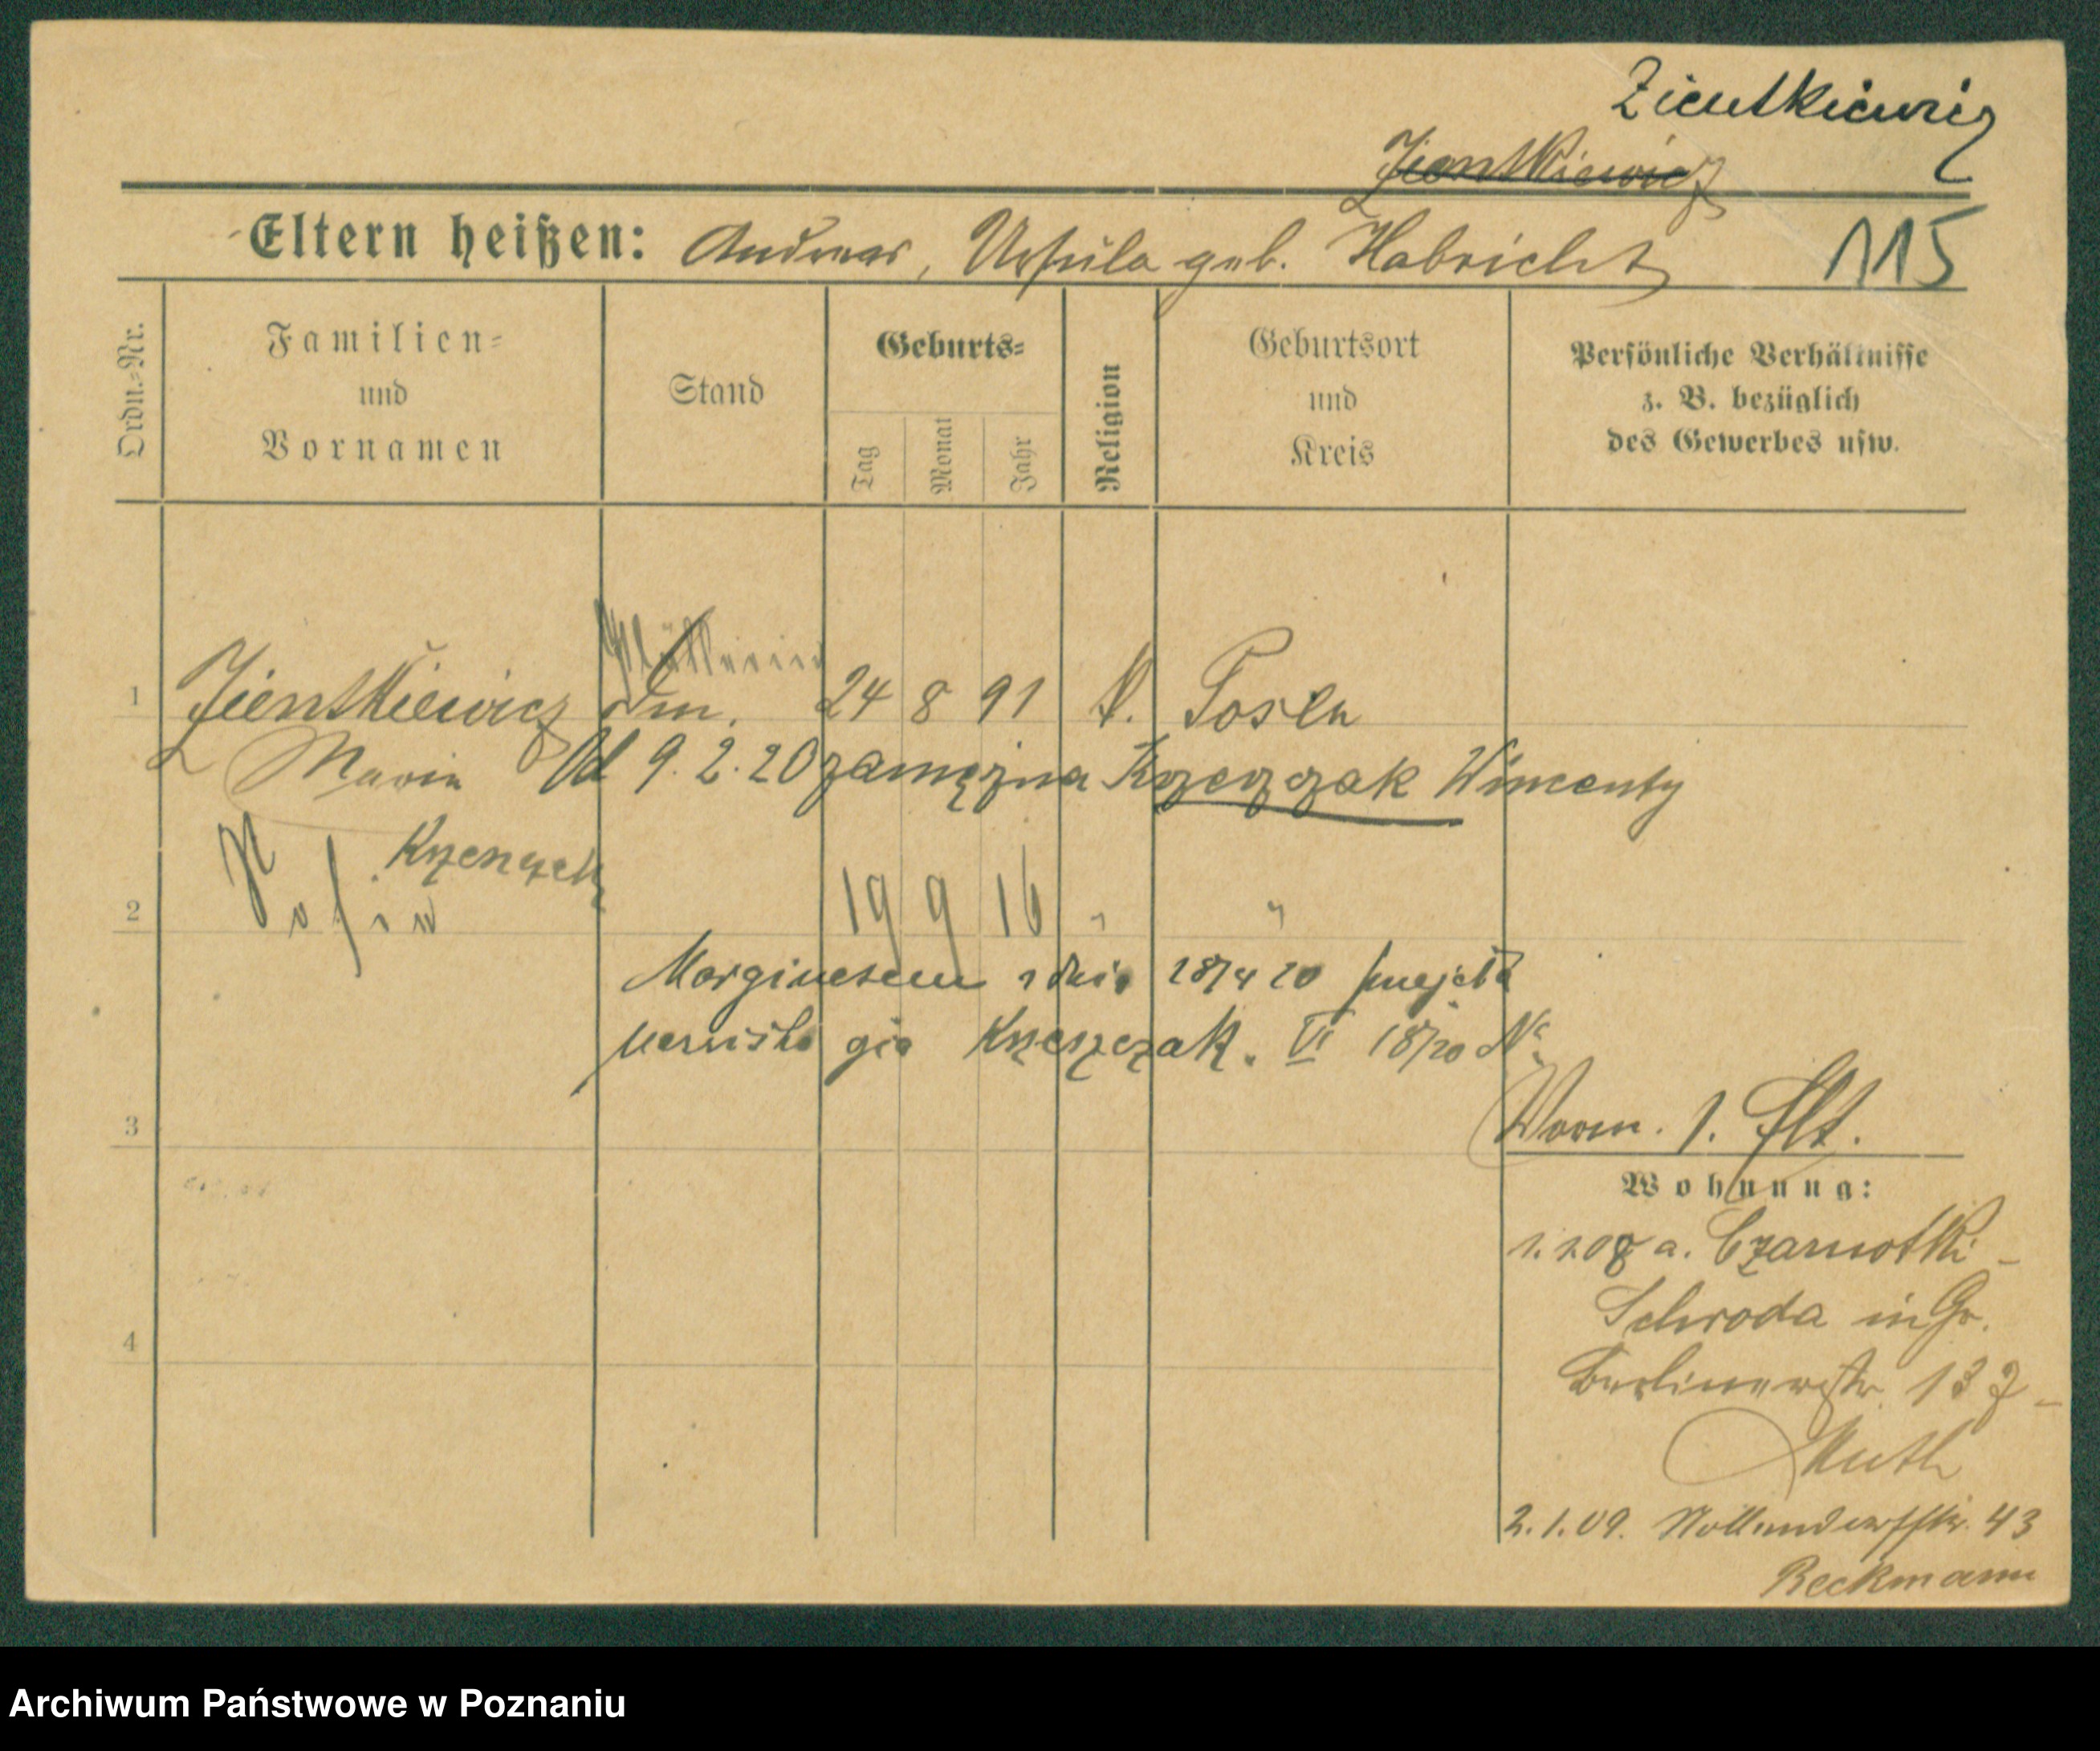 Zientkiewicz
Zientkiewicz
Eltern heißen: Andreas, Ursula geb. Habricht
115
Ordn.-Nr.
Familien-
und
Vornamen
Stand
Geburts-
Tag
Monat
Jahr
Religion
Geburtsort
und
Kreis
Persönliche Verhältnisse
z. B. bezüglich
des Gewerbes usw.
1 Zientkiewicz 24 8 91 k. Posen
Maria Od 9. 2. 20 zamężna Krzeszczak Wincenty
2 19 9 16 " "
Marginesem z dnia 18/4 20 przejęła
nazwisko Krzeszczak. VI 18/20
3
Wohnung:
1.1.08 a. Czarnotki -
Schroda in Gr.
4
Berlinerstr. 13
Muth
2.1.09. 43
Beckmann
Archiwum Państwowe w Poznaniu